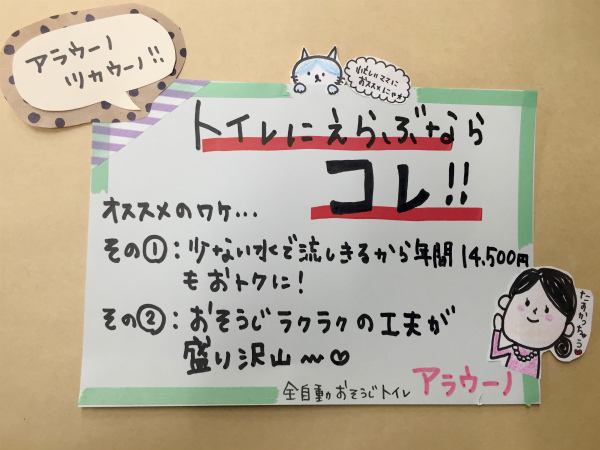 アラウーノ
ツカウーノ!!
忙しいママに
おススメにゃ★
トイレにえらぶなら
コレ!!
オススメのワケ…
その①:少ない水で流しきるから年間14.500円
もおトクに!
その②:おそうじラクラクの工夫が
盛り沢山〜♡
たすかっちゃう♥
全自動おそうじトイレ アラウーノ